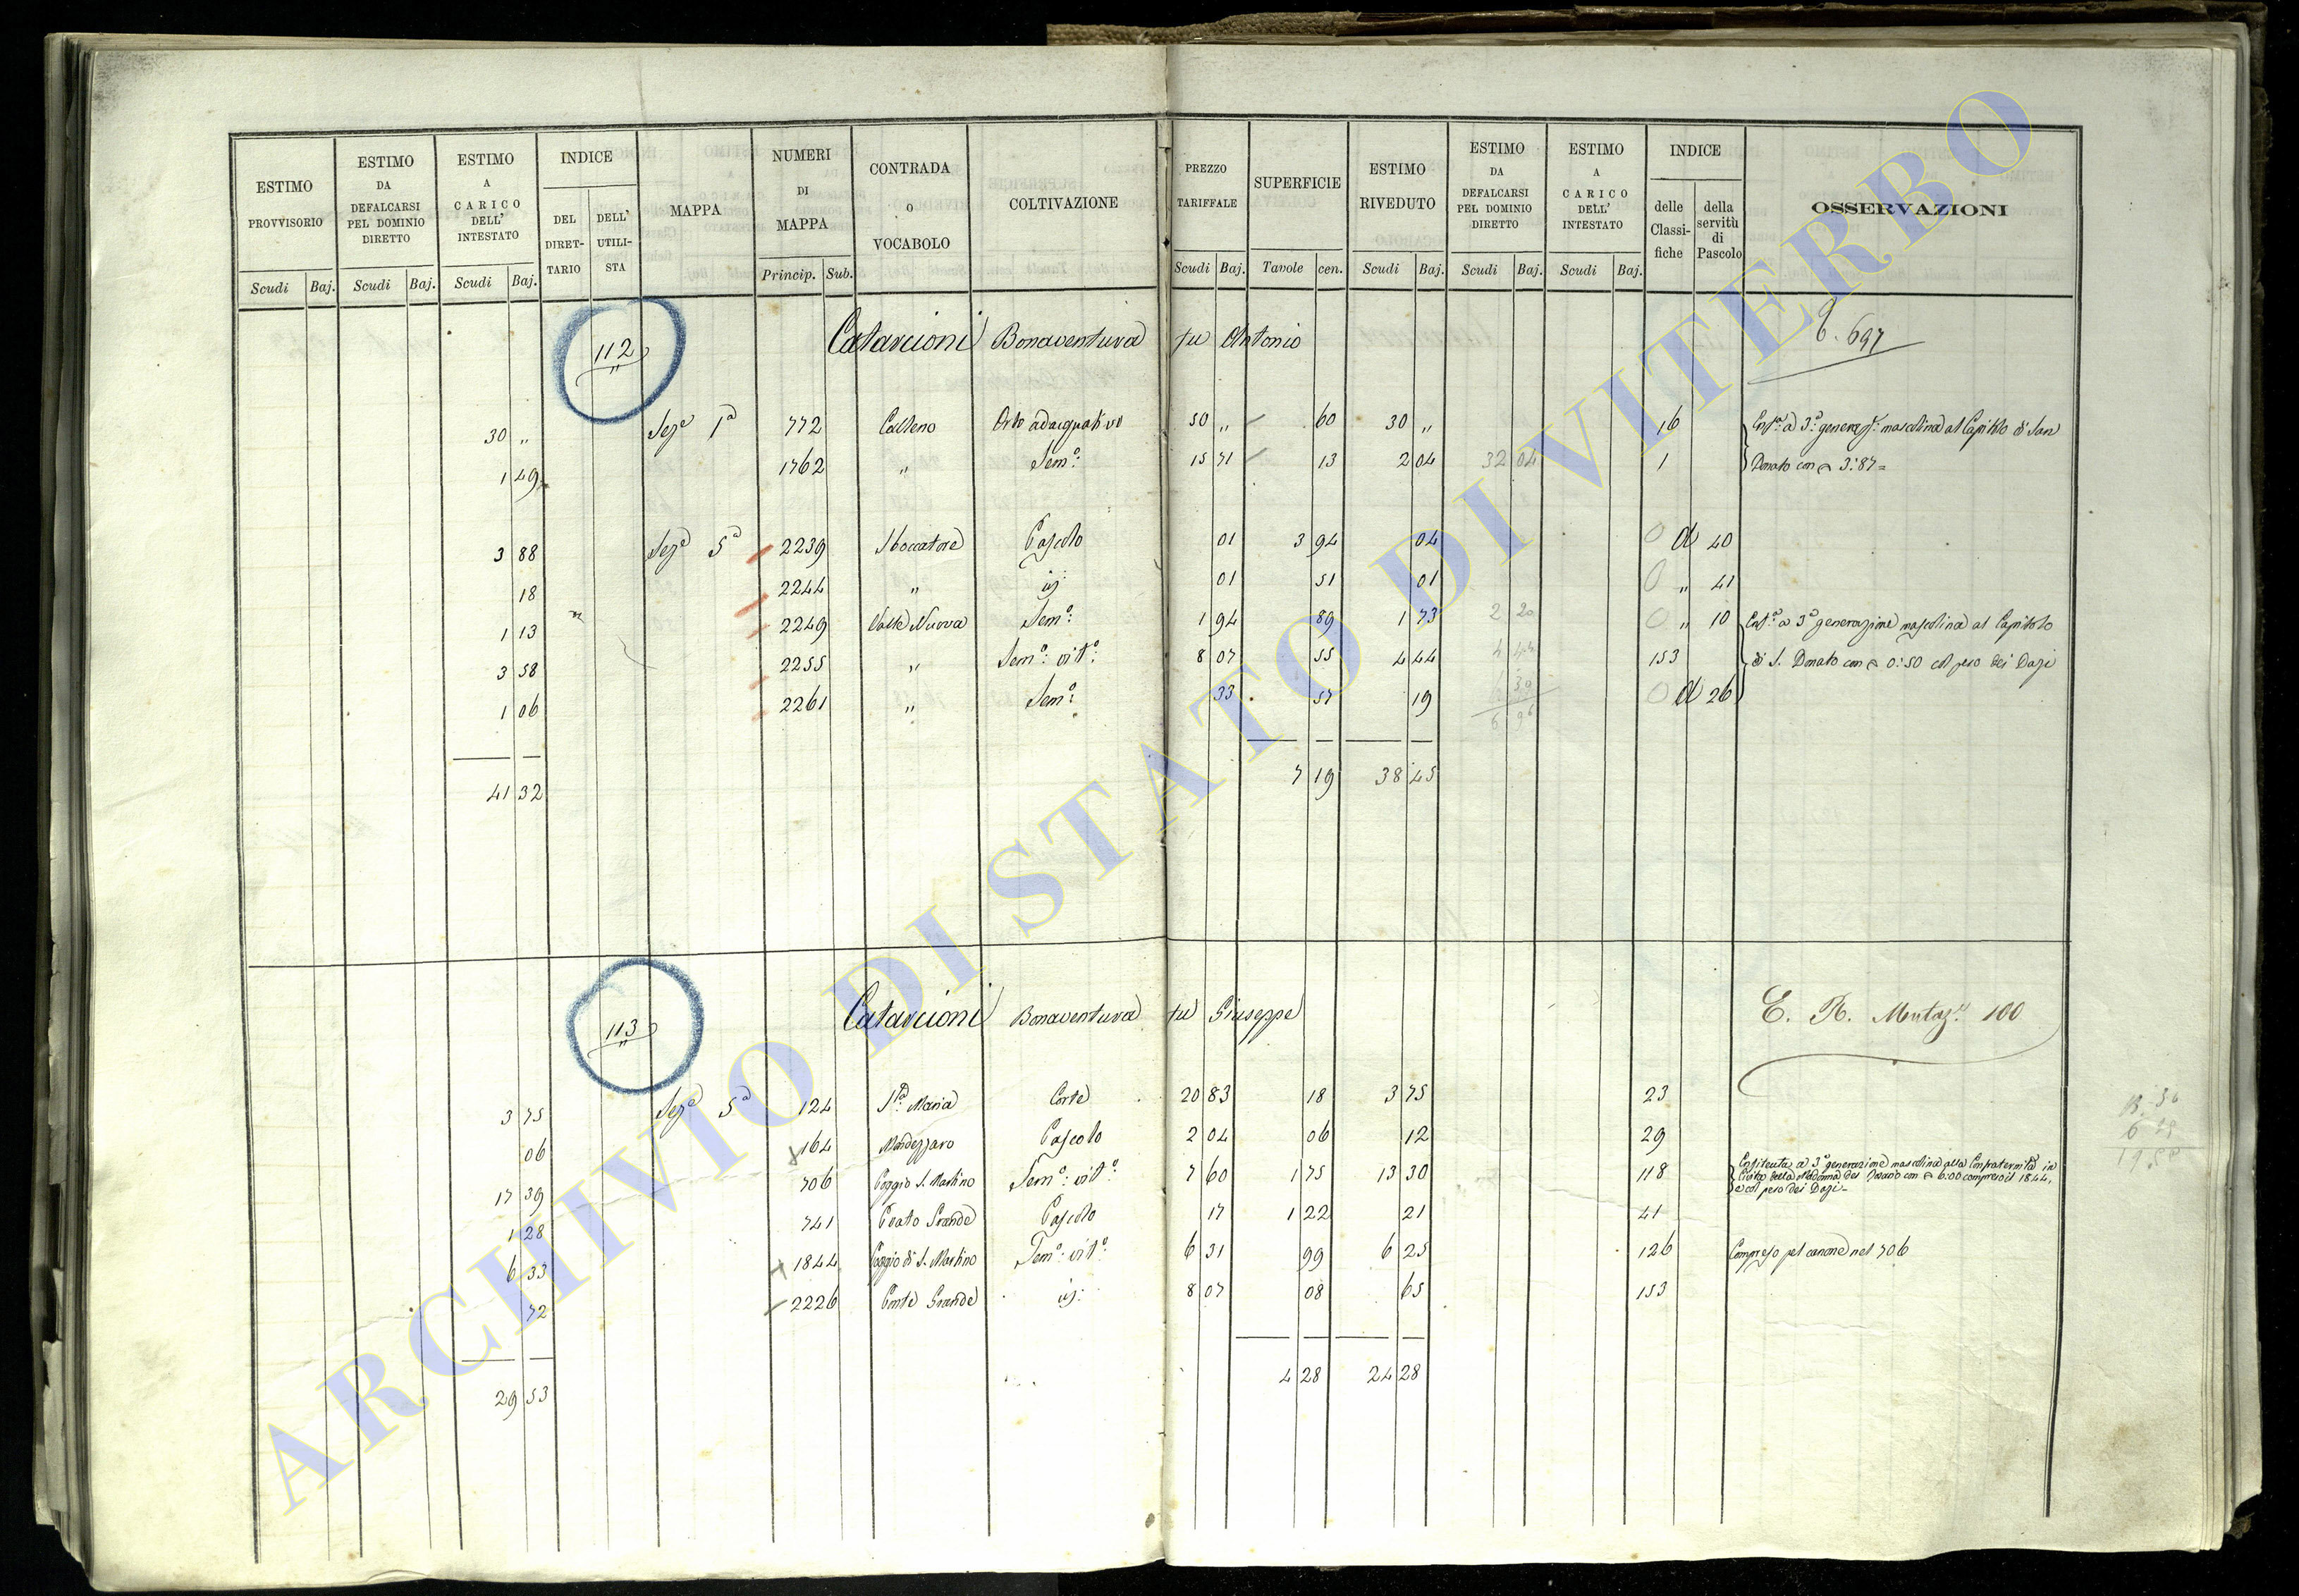 ESTIMO PROVVISORIO Scudi Baj. ESTIMO DA DEFALCARSI PEL DOMINIO DIRETTO Scudi Baj. ESTIMO A CARICO DELL' INTESTATO Scudi Baj. INDICE DEL DIRET-TARIO DELL' UTILI-STA MAPPA NUMERI DI MAPPA Princip. Sub. CONTRADA O VOCABOLO COLTIVAZIONE PREZZO TARIFFALE Scudi Baj. SUPERFICIE Tavole cen. ESTIMO RIVEDUTO Scudi Baj. ESTIMO DA DEFALCARSI PEL DOMINIO DIRETTO Scudi Baj. ESTIMO A CARICO DELL' INTESTATO Scudi Baj. INDICE delle Classi-fiche della servitù di Pascolo OSSERVAZIONI
112 Catarcioni Bonaventura fu Antonio 697
30 " Sez.e 1a 772 Calleno Orto adacquativo 50 " 60 30 " 16 Enf.a a 3.a gener.e mascolina al Capitolo di San
1 49 1762 " Sem.o 15 71 13 2 04 32 04 1 Donato con 3:87=
3 88 Sez.e 5a 2239 Sboccatore Pascolo 01 3 94 04 0 A 40
18 2244 " id: 01 51 01 0 " 41
1 13 2249 Valle Nuova Sem.o 1 94 89 1 73 2 20 0 " 10 Enf.a a 3.a generazione mascolina al Capitolo
3 58 2255 " Sem.o: vit.o: 8 07 55 4 44 4 44 153 di S. Donato con 0:50 col peso dei Dazi
1 06 2261 " Sem.o 33 57 19 0 A 26
6 96
41 32 7 19 38 45
113 Catarcioni Bonaventura fu Giuseppe E. R. Mutaz.i 100
3 75 Sez.e 5a 124 S.a Maria Corte 20 83 18 3 75 23
06 164 Pascolo 2 04 06 12 29
17 39 706 Poggio S. Martino Sem.o: vit.o: 7 60 1 75 13 30 118 Enfiteuta a 3.a generazione mascolina alla Confraternita in
Civita della Madonna del Rosario con 6:00 compreso il 1844,
e col peso dei Dazi
1 28 741 Prato Grande Pascolo 17 1 22 21 41
6 33 1844 Poggio di S. Martino Sem.o: vit.o: 6 31 99 6 25 126 Compreso pel canone nel 706
72 2226 Grande id: 8 07 08 65 153
29 53 4 28 24 28
ARCHIVIO DI STATO DI VITERBO